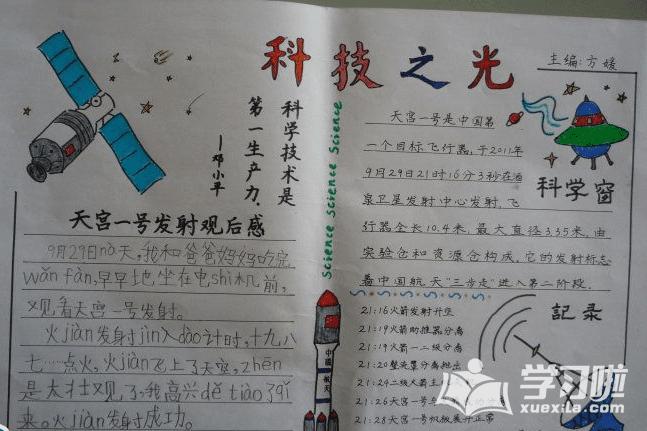 科技之光
主编:方媛
科学技术是
第一生产力.
—邓小平
天宫一号发射观后感
9月29日nà天,我和爸爸妈妈吃完
wǎn fàn,早早地坐在电shì机前,
观看天宫一号发射。
火jiàn发射jìn入dào计时,十九八
七……点火,火jiàn飞上了天宫,zhēn
是太壮观了,我高兴dě tiào了qǐ
来。火jiàn发射成功。
Science Science Science
中国航天
天宫一号是中国第
一个目标飞行器,于2011年
9月29日21时16分3秒在酒
泉卫星发射中心发射,飞
行器全长10.4米,最大直径3.35米,由
实验仓和资源仓构成,它的发射标志
着中国航天"三步走"进入第二阶段.
科学窗
記录
21:16火箭发射升空
21:19火箭助推器分离
21:19火箭一二级分离
21:20整流罩分离抛出
21:24二级火箭主
21:26天宫一号与
21:28天宫一号帆板展开正常
学习啦
xuexila.com